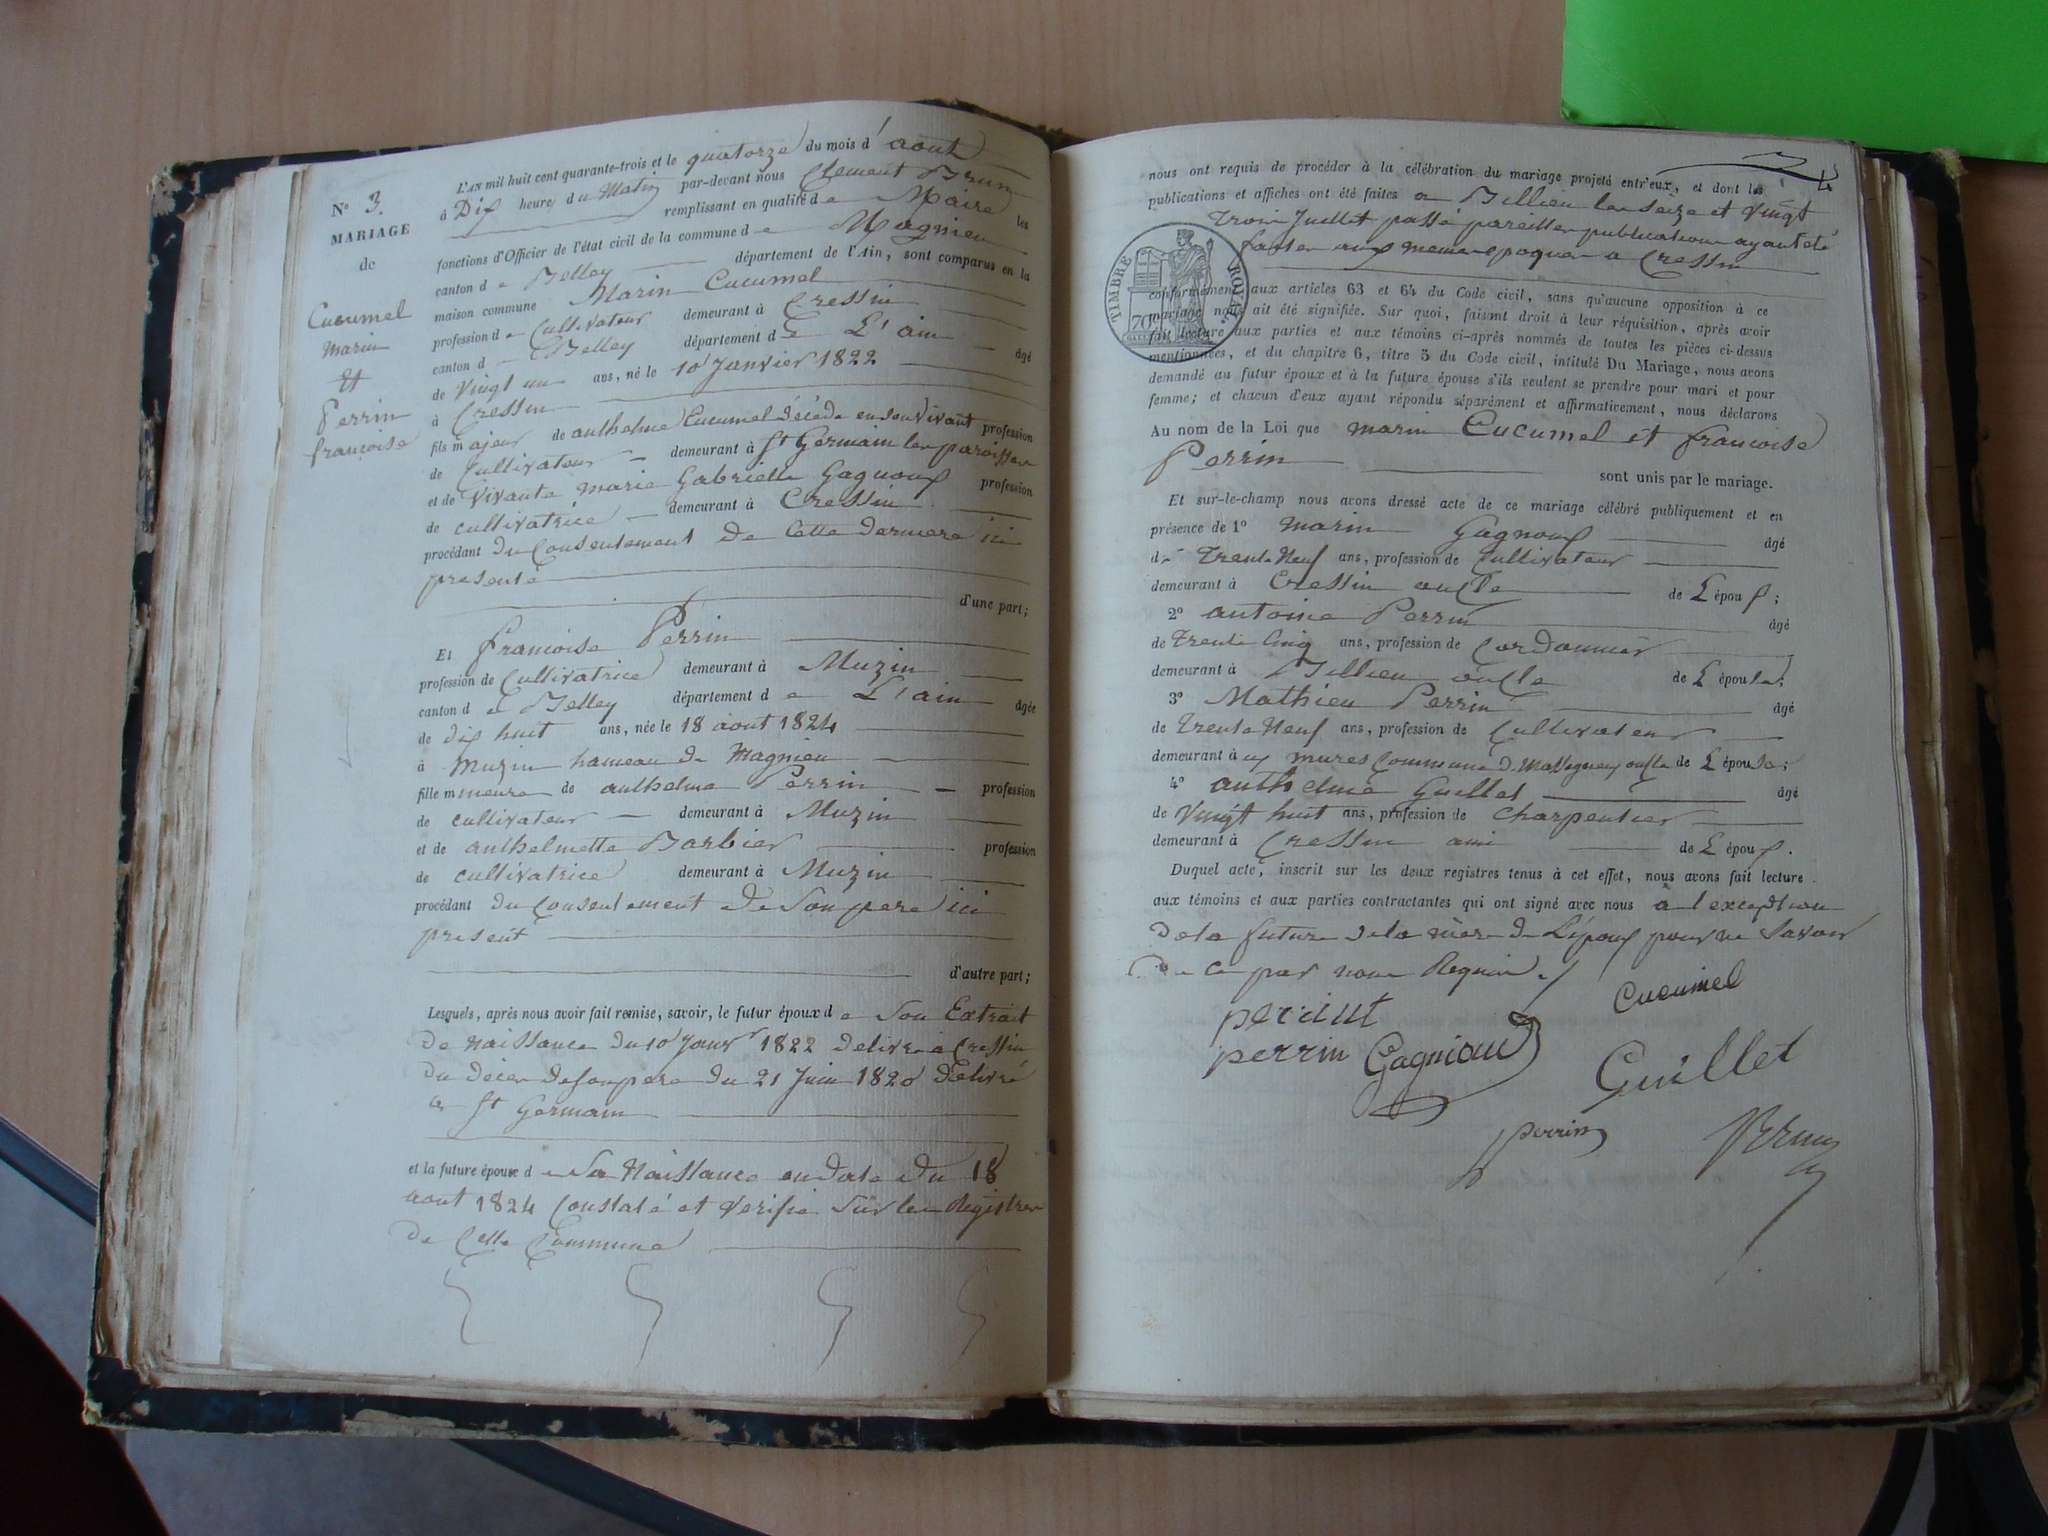 N° 3.
MARIAGE
de
Cucumel
Marin
Et
Perrin
francoise
L'AN mil huit cent quarante-trois et le quatorze du mois d'aout
à Dix heure du Matin par-devant nous Clement Brun
remplissant en qualité de Maire les
fonctions d'Officier de l'état civil de la commune de Magnieu
canton de Belley département de l'Ain, sont comparus en la
maison commune Marin Cucumel
profession de Cultivateur demeurant à Cressin
canton de Belley département de L'ain âgé
de vingt un ans, né le 10 Janvier 1822
à Cressin
fils majeur de anthelme Cucumel décédé en son vivant profession
de Cultivateur demeurant à St Germain les paroisses
et de vivante marie Gabrielle Gagnoux profession
de cultivatrice demeurant à Cressin
procédant du Consentement de Cette derniere ici
presente
d'une part;
Et francoise Perrin
profession de Cultivatrice demeurant à Muzin
canton de Belley département de L'ain âgée
de dix huit ans, née le 18 aout 1824
à Muzin hameau de Magnieu
fille mineure de anthelme Perrin profession
de cultivateur demeurant à Muzin
et de anthelmette Barbier profession
de cultivatrice demeurant à Muzin
procédant du Consentement de Son pere ici
present
d'autre part;
Lesquels, après nous avoir fait remise, savoir, le futur époux de Son Extrait
de Naissance du 10 Janvr 1822 delivré a Cressin
du décès de son pere du 21 Juin 1820 délivré
a St Germain
et la future épouse de Sa Naissance en date du 18
aout 1824 Constaté et Verifié Sur les Registres
de Cette Commune
4
nous ont requis de procéder à la célébration du mariage projeté entr'eux, et dont les
publications et affiches ont été faites a Billieu les seize et vingt
trois Juillet passé pareilles publications ayant été
faites aux meme epoques a Cressin
TIMBRE ROYAL
70
conformément aux articles 63 et 64 du Code civil, sans qu'aucune opposition à ce
mariage nous ait été signifiée. Sur quoi, faisant droit à leur réquisition, après avoir
fait lecture aux parties et aux témoins ci-après nommés de toutes les pièces ci-dessus
mentionnées, et du chapitre 6, titre 5 du Code civil, intitulé Du Mariage, nous avons
demandé au futur époux et à la future épouse s'ils veulent se prendre pour mari et pour
femme; et chacun d'eux ayant répondu séparément et affirmativement, nous déclarons
Au nom de la Loi que marin Cucumel et francoise
Perrin
sont unis par le mariage.
Et sur-le-champ nous avons dressé acte de ce mariage célébré publiquement et en
présence de 1° marin Gagnoux âgé
de trente Neuf ans, profession de Cultivateur
demeurant à Cressin oncle de L'époux;
2° antoine Perrin âgé
de trente Cinq ans, profession de Cordonnier
demeurant à Billieu oncle de L'épouse;
3° Mathieu Perrin âgé
de trente Neuf ans, profession de Cultivateur
demeurant à mures Commune d. oncle de L'épouse;
4° anthelme Guillet âgé
de Vingt huit ans, profession de Charpentier
demeurant à Cressin ami de L'époux.
Duquel acte, inscrit sur les deux registres tenus à cet effet, nous avons fait lecture
aux témoins et aux parties contractantes qui ont signé avec nous a l'exception
de la future de la mère de L'époux pour ne Savoir
de ce par nous Requis
Cucumel
perrin Gagnioux
Guillet
perrin Brun